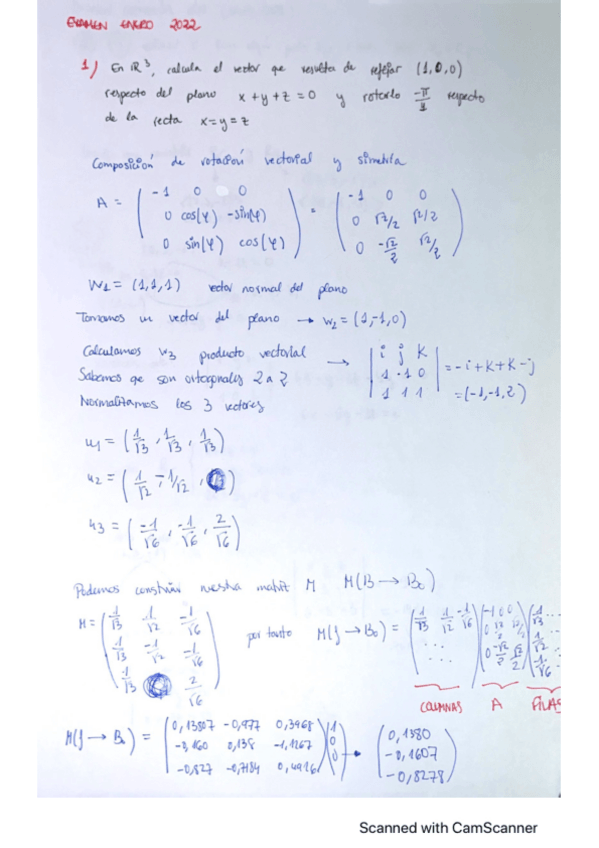 EXAMEN ENERO 2022
1) En R³, calcula el vector que resulta de reflejar (1,0,0)
respecto del plano x+y+z=0 y rotarlo -π/ respecto
de la recta x=y=z
Composición de rotación vectorial y simetría
A = ( -1 0 0 ; 0 cos(φ) -sin(φ) ; 0 sin(φ) cos(φ) ) = ( -1 0 0 ; 0 √2/2 √2/2 ; 0 -√2/2 √2/2 )
W1 = (1,1,1) vector normal del plano
Tomamos un vector del plano → w2 = (1,-1,0)
Calculamos w3 producto vectorial → | i j k ; 1 -1 0 ; 1 1 1 | = -i+k+k-j
Sabemos que son ortogonales 2 a 2 = (-1,-1,2)
Normalizamos los 3 vectores
u1 = (1/√3, 1/√3, 1/√3)
u2 = (1/√2, -1/√2, )
u3 = (-1/√6, -1/√6, 2/√6)
Podemos construir nuestra matriz M M(B → B0)
M = ( 1/√3 1/√2 -1/√6 ; 1/√3 -1/√2 -1/√6 ; 1/√3 2/√6 ) por tanto M(f → B0) = ( 1/√3 1/√2 -1/√6 ... ) ( -1 0 0 ; 0 √2/2 √2/2 ; 0 -√2/2 √2/2 ) ( 1/√3 ... ; 1/√2 ; -1/√6 ...
COLUMNAS A FILAS
M(f → B0) = ( 0,13807 -0,977 0,3968 ; -0,160 0,138 -1,1267 ; -0,827 -0,7184 0,4916 ) ( 1 ; 0 ; 0 ) = ( 0,1380 ; -0,1607 ; -0,8278 )
Scanned with CamScanner